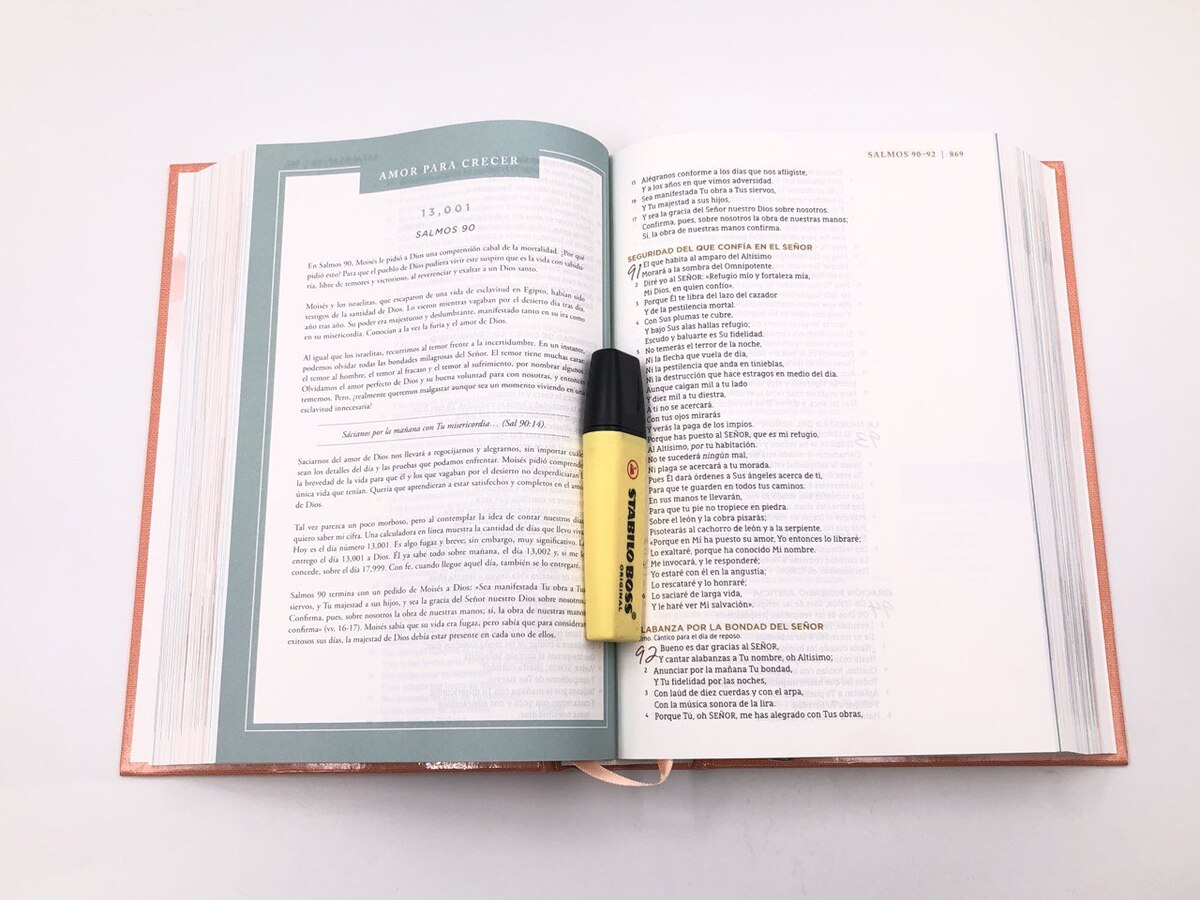 AMOR PARA CRECER
13,001
SALMOS 90
En Salmos 90, Moisés le pidió a Dios una comprensión cabal de la mortalidad. ¿Por qué
pidió esto? Para que el pueblo de Dios pudiera vivir este suspiro que es la vida con sabidu-
ría, libre de temores y victorioso, al reverenciar y exaltar a un Dios santo.
Moisés y los israelitas, que escaparon de una vida de esclavitud en Egipto, habían sido
testigos de la santidad de Dios. Lo vieron mientras vagaban por el desierto día tras día,
año tras año. Su poder era majestuoso y deslumbrante, manifestado tanto en su ira como
en su misericordia. Conocían a la vez la furia y el amor de Dios.
Al igual que los israelitas, recurrimos al temor frente a la incertidumbre. En un instante,
podemos olvidar todas las bondades milagrosas del Señor. El temor tiene muchas caras:
el temor al hombre, el temor al fracaso y el temor al sufrimiento, por nombrar algunos.
Olvidamos el amor perfecto de Dios y su buena voluntad para con nosotras, y entonces
tememos. Pero, ¿realmente queremos malgastar aunque sea un momento viviendo en una
esclavitud innecesaria?
Sácianos por la mañana con Tu misericordia… (Sal 90:14).
Saciarnos del amor de Dios nos llevará a regocijarnos y alegrarnos, sin importar cuáles
sean los detalles del día y las pruebas que podamos enfrentar. Moisés pidió comprender
la brevedad de la vida para que él y los que vagaban por el desierto no desperdiciaran la
única vida que tenían. Quería que aprendieran a estar satisfechos y completos en el amor
de Dios.
Tal vez parezca un poco morboso, pero al contemplar la idea de contar nuestros días
quiero saber mi cifra. Una calculadora en línea muestra la cantidad de días que llevo viva.
Hoy es el día número 13,001. Es algo fugaz y breve; sin embargo, muy significativo. Le
entrego el día 13,001 a Dios. Él ya sabe todo sobre mañana, el día 13,002 y, si me lo
concede, sobre el día 17,999. Con fe, cuando llegue aquel día, también se lo entregaré.
Salmos 90 termina con un pedido de Moisés a Dios: «Sea manifestada Tu obra a Tus
siervos, y Tu majestad a sus hijos, y sea la gracia del Señor nuestro Dios sobre nosotros.
Confirma, pues, sobre nosotros la obra de nuestras manos; sí, la obra de nuestras manos
confirma» (vv. 16-17). Moisés sabía que su vida era fugaz, pero sabía que para considerar
exitosos sus días, la majestad de Dios debía estar presente en cada uno de ellos.
STABILO BOSS®
ORIGINAL
SALMOS 90–92 | 869
15 Alégranos conforme a los días que nos afligiste,
Y a los años en que vimos adversidad.
16 Sea manifestada Tu obra a Tus siervos,
Y Tu majestad a sus hijos,
17 Y sea la gracia del Señor nuestro Dios sobre nosotros.
Confirma, pues, sobre nosotros la obra de nuestras manos;
Sí, la obra de nuestras manos confirma.
SEGURIDAD DEL QUE CONFÍA EN EL SEÑOR
91 El que habita al amparo del Altísimo
Morará a la sombra del Omnipotente.
2 Diré yo al SEÑOR: «Refugio mío y fortaleza mía,
Mi Dios, en quien confío».
3 Porque Él te libra del lazo del cazador
Y de la pestilencia mortal.
4 Con Sus plumas te cubre,
Y bajo Sus alas hallas refugio;
Escudo y baluarte es Su fidelidad.
5 No temerás el terror de la noche,
Ni la flecha que vuela de día,
Ni la pestilencia que anda en tinieblas,
Ni la destrucción que hace estragos en medio del día.
Aunque caigan mil a tu lado
Y diez mil a tu diestra,
A ti no se acercará.
Con tus ojos mirarás
Y verás la paga de los impíos.
Porque has puesto al SEÑOR, que es mi refugio,
Al Altísimo, por tu habitación.
No te sucederá ningún mal,
Ni plaga se acercará a tu morada.
Pues Él dará órdenes a Sus ángeles acerca de ti,
Para que te guarden en todos tus caminos.
En sus manos te llevarán,
Para que tu pie no tropiece en piedra.
Sobre el león y la cobra pisarás;
Pisotearás al cachorro de león y a la serpiente.
«Porque en Mí ha puesto su amor, Yo entonces lo libraré;
Lo exaltaré, porque ha conocido Mi nombre.
Me invocará, y le responderé;
Yo estaré con él en la angustia;
Lo rescataré y lo honraré;
Lo saciaré de larga vida,
Y le haré ver Mi salvación».
LABANZA POR LA BONDAD DEL SEÑOR
Cántico para el día de reposo.
92 Bueno es dar gracias al SEÑOR,
Y cantar alabanzas a Tu nombre, oh Altísimo;
2 Anunciar por la mañana Tu bondad,
Y Tu fidelidad por las noches,
3 Con laúd de diez cuerdas y con el arpa,
Con la música sonora de la lira.
4 Porque Tú, oh SEÑOR, me has alegrado con Tus obras,